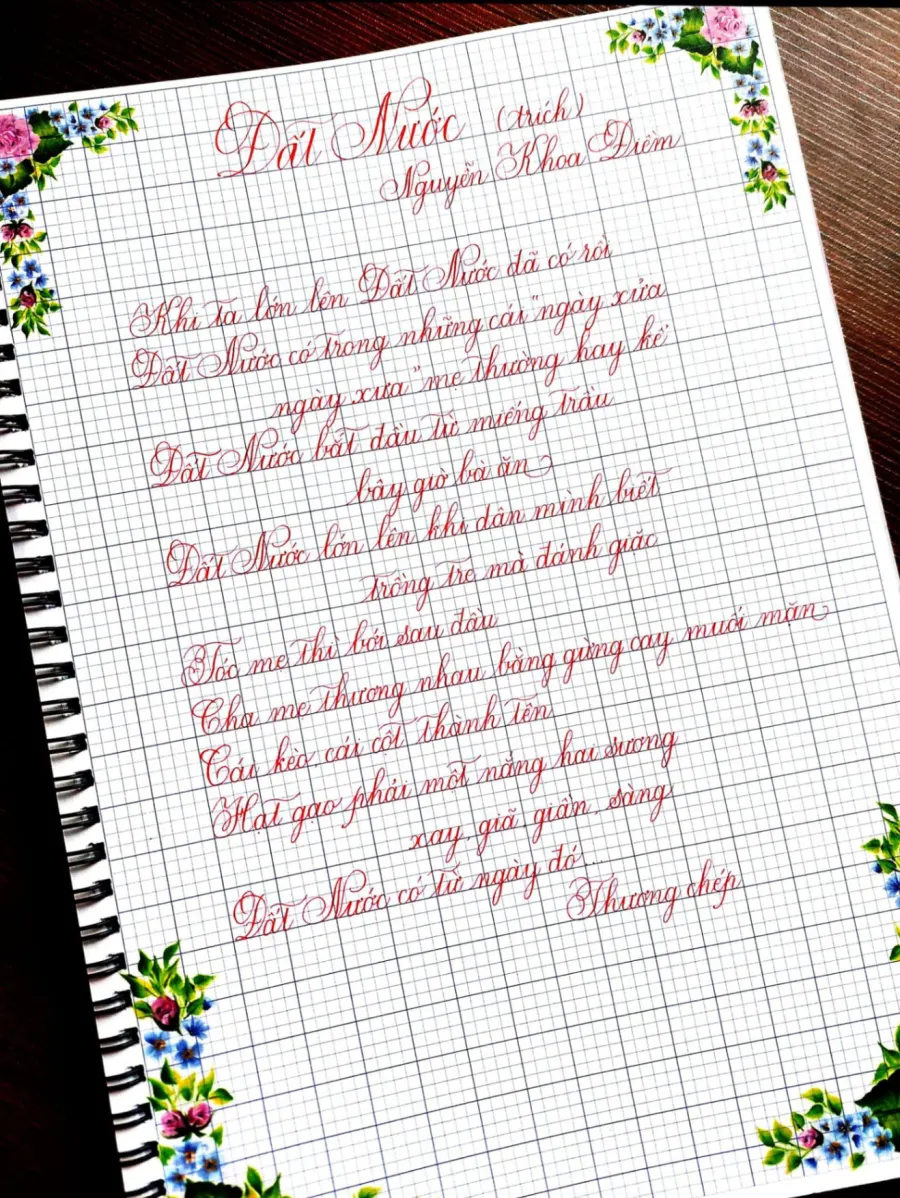 Đất Nước (trích)
Nguyễn Khoa Điềm
Khi ta lớn lên Đất Nước đã có rồi
Đất Nước có trong những cái "ngày xửa
ngày xưa" mẹ thường hay kể
Đất Nước bắt đầu từ miếng trầu
bây giờ bà ăn
Đất Nước lớn lên khi dân mình biết
trồng tre mà đánh giặc
Tóc mẹ thì bới sau đầu
Cha mẹ thương nhau bằng gừng cay muối mặn
Cái kèo cái cột thành tên
Hạt gạo phải một nắng hai sương
xay, giã, giần, sàng
Đất Nước có từ ngày đó...
Thương chép